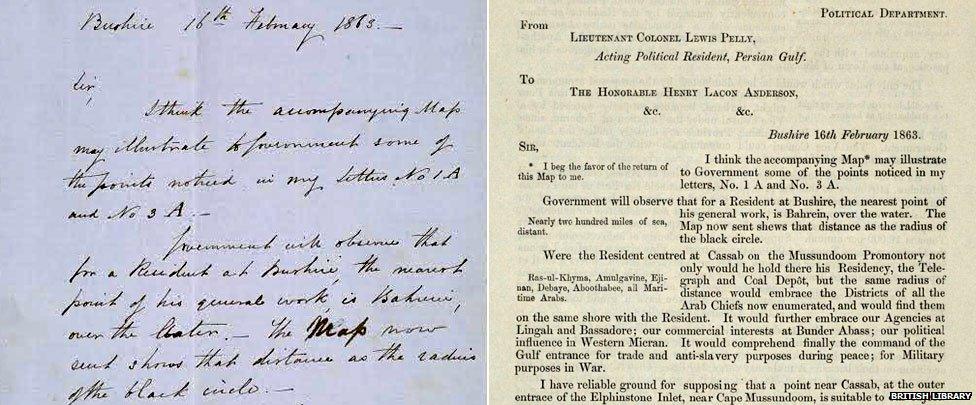 Bushire 16th February 1863. —
Sir,
I think the accompanying Map
may illustrate to Government some of
the points noticed in my letters No 1 A
and No 3 A. —
Government will observe that
for a Resident at Bushire, the nearest
point of his general work, is Bahrein,
over the Water. — The Map now
sent shows that distance as the radius
of the black circle. —
POLITICAL DEPARTMENT.
From
LIEUTENANT COLONEL LEWIS PELLY,
Acting Political Resident, Persian Gulf.
To
THE HONORABLE HENRY LACON ANDERSON,
&c. &c.
Bushire 16th February 1863.
SIR,
* I beg the favor of the return of
this Map to me.
I think the accompanying Map* may illustrate
to Government some of the points noticed in my
letters, No. 1 A and No. 3 A.
Government will observe that for a Resident at Bushire, the nearest point of
Nearly two hundred miles of sea,
distant.
his general work, is Bahrein, over the water. The
Map now sent shews that distance as the radius of
the black circle.
Were the Resident centred at Cassab on the Mussundoom Promontory not
Ras-ul-Khyma, Amulgavine, Eji-
nan, Debaye, Aboothabee, all Mari-
time Arabs.
only would he hold there his Residency, the Tele-
graph and Coal Depôt, but the same radius of
distance would embrace the Districts of all the
Arab Chiefs now enumerated, and would find them
on the same shore with the Resident. It would further embrace our Agencies at
Lingah and Bassadore; our commercial interests at Bunder Abass; our political
influence in Western Micran. It would comprehend finally the command of the
Gulf entrance for trade and anti-slavery purposes during peace; for Military
purposes in War.
I have reliable ground for supposing that a point near Cassab, at the outer
entrace of the Elphinstone Inlet, near Cape Mussundoom, is suitable to
BRITISH LIBRARY